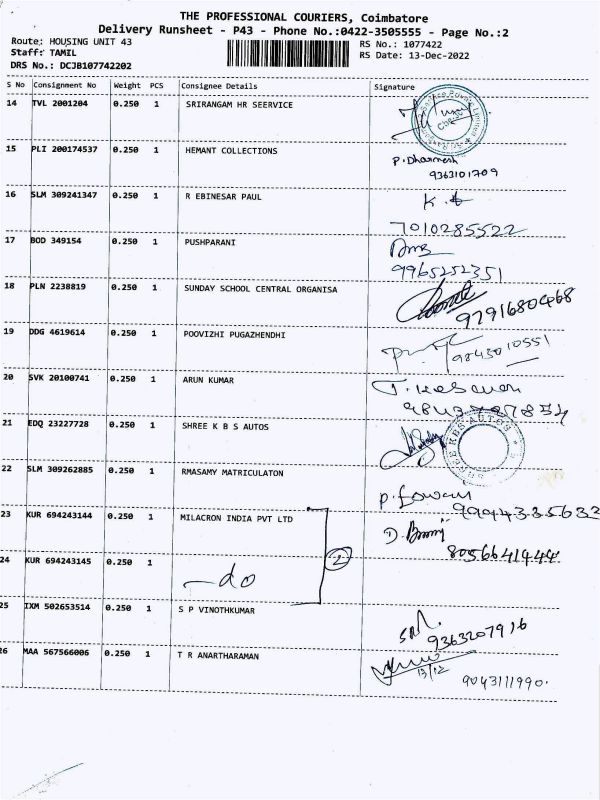 THE PROFESSIONAL COURIERS, Coimbatore
Delivery Runsheet - P43 - Phone No.:0422-3505555 - Page No.:2
Route: HOUSING UNIT 43 RS No.: 1077422
Staff: TAMIL RS Date: 13-Dec-2022
DRS No.: DCJB107742202
S No Consignment No Weight PCS Consignee Details Signature
14 TVL 2001204 0.250 1 SRIRANGAM HR SEERVICE
15 PLI 200174537 0.250 1 HEMANT COLLECTIONS P. Dharmesh
9363101709
16 SLM 309241347 0.250 1 R EBINESAR PAUL
7010285522
17 BOD 349154 0.250 1 PUSHPARANI
9965252351
18 PLN 2238819 0.250 1 SUNDAY SCHOOL CENTRAL ORGANISA
9791680468
19 DDG 4619614 0.250 1 POOVIZHI PUGAZHENDHI
9843010551
20 SVK 20100741 0.250 1 ARUN KUMAR T. Kesavan
21 EDQ 23227728 0.250 1 SHREE K B S AUTOS
SHREE KBS AUTOS
22 SLM 309262885 0.250 1 RMASAMY MATRICULATON
9994335633
23 KUR 694243144 0.250 1 MILACRON INDIA PVT LTD
8056641444
24 KUR 694243145 0.250 1 -do 2
25 IXM 502653514 0.250 1 S P VINOTHKUMAR
9363207916
26 MAA 567566006 0.250 1 T R ANARTHARAMAN
13/12 9043111990.